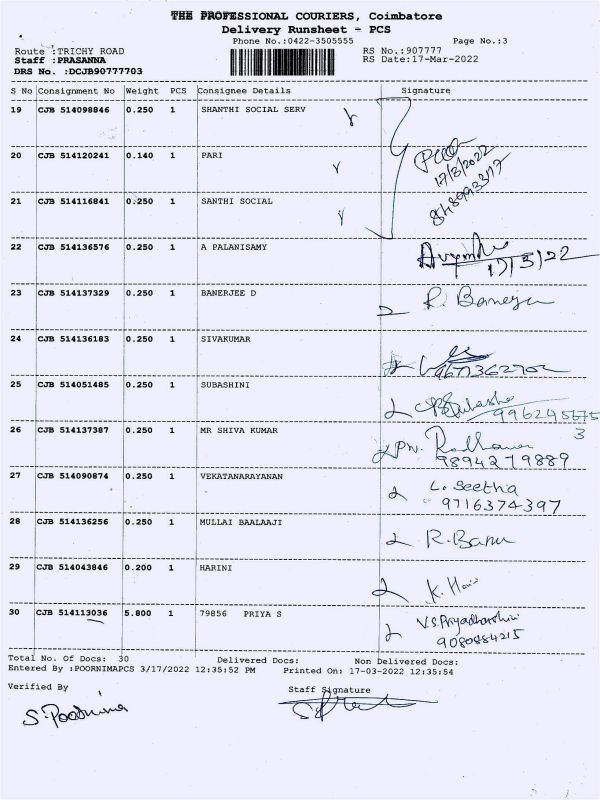 THE PROFESSIONAL COURIERS, Coimbatore
Delivery Runsheet - PCS
Phone No.:0422-3505555 Page No.:3
Route :TRICHY ROAD RS No.:907777
Staff :PRASANNA RS Date:17-Mar-2022
DRS No. :DCJB90777703
S No Consignment No Weight PCS Consignee Details Signature
19 CJB 514098846 0.250 1 SHANTHI SOCIAL SERV
20 CJB 514120241 0.140 1 PARI
17/3/2022
21 CJB 514116841 0.250 1 SANTHI SOCIAL
22 CJB 514136576 0.250 1 A PALANISAMY
17/3/22
23 CJB 514137329 0.250 1 BANERJEE D
24 CJB 514136183 0.250 1 SIVAKUMAR
9677362702
25 CJB 514051485 0.250 1 SUBASHINI
996245675
3
26 CJB 514137387 0.250 1 MR SHIVA KUMAR
9894279889
27 CJB 514090874 0.250 1 VEKATANARAYANAN L. Seetha
9716374397
28 CJB 514136256 0.250 1 MULLAI BAALAAJI R. Banu
29 CJB 514043846 0.200 1 HARINI
30 CJB 514113036 5.800 1 79856 PRIYA S V.S.Priyadharshini
9080884215
Total No. Of Docs: 30 Delivered Docs: Non Delivered Docs:
Entered By :POORNIMAPCS 3/17/2022 12:35:52 PM Printed On: 17-03-2022 12:35:54
Verified By Staff Signature
S. Poornima